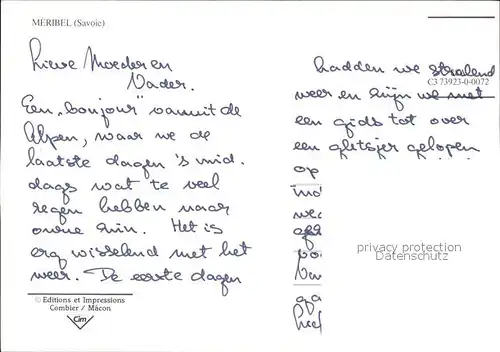 MÉRIBEL (Savoie)
Lieve Moeder en
Vader.
Een "bonjour" vanuit de
Alpen, waar we de
laatste dagen 's mid.
dags wat te veel
regen hebben naar
onze zin. Het is
erg wisselend met het
weer. De eerste dagen
© Editions et Impressions
Combier / Mâcon
Cim
hadden we stralend
C3 73923-0-0072
weer en zijn we met
een gids tot over
een gletsjer gelopen
op
privacy protection
Datenschutz